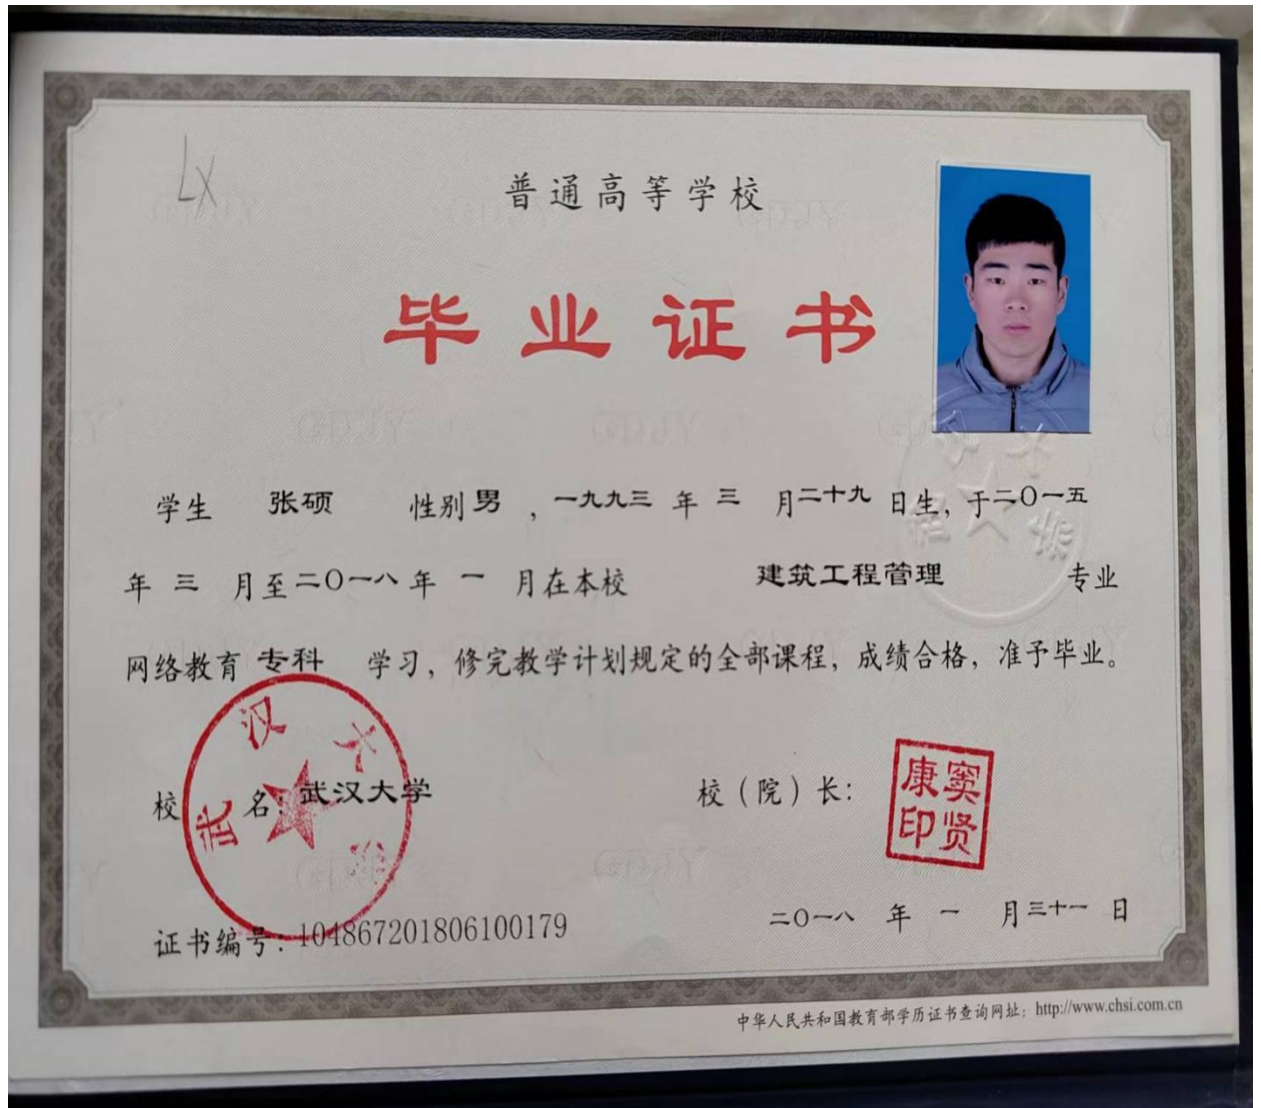 LX
普通高等学校
毕业证书
学生 张硕 性别 男 ，一九九三 年 三 月二十九 日生，于二〇一五
年 三 月至二〇一八 年 一 月在本校 建筑工程管理 专业
网络教育 专科 学习，修完教学计划规定的全部课程，成绩合格，准予毕业。
武汉大学
校 名：武汉大学 校（院）长：
窦贤
康印
证书编号：104867201806100179 二〇一八 年 一 月三十一 日
中华人民共和国教育部学历证书查询网址：http://www.chsi.com.cn